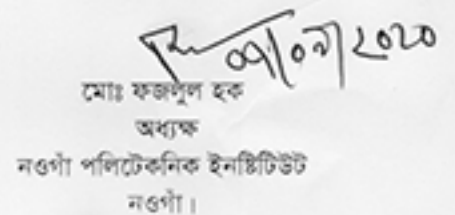 ০৭/০৯/২০২০
মোঃ ফজলুল হক
অধ্যক্ষ
নওগাঁ পলিটেকনিক ইনষ্টিটিউট
নওগাঁ।